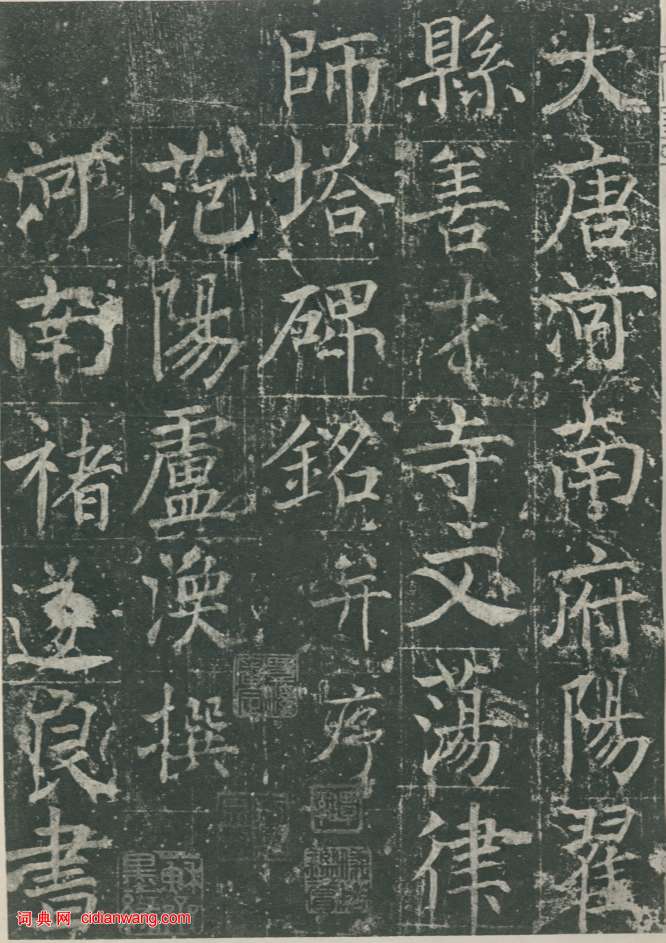 大唐河南府陽翟
縣善才寺文蕩律
師塔碑銘并序
范陽盧渙撰
河南褚遂良書
词典网 cidianwang.com